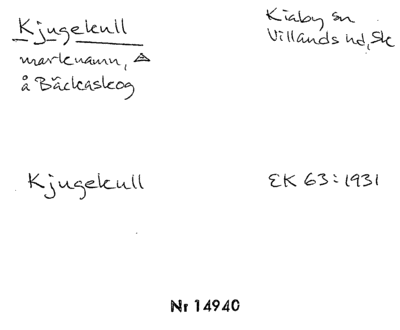 Kjugekull
Kiaby sn
Villands hd, Sk
marknamn, △
å Bäckaskog
Kjugekull
EK 63:1931
Nr 14940